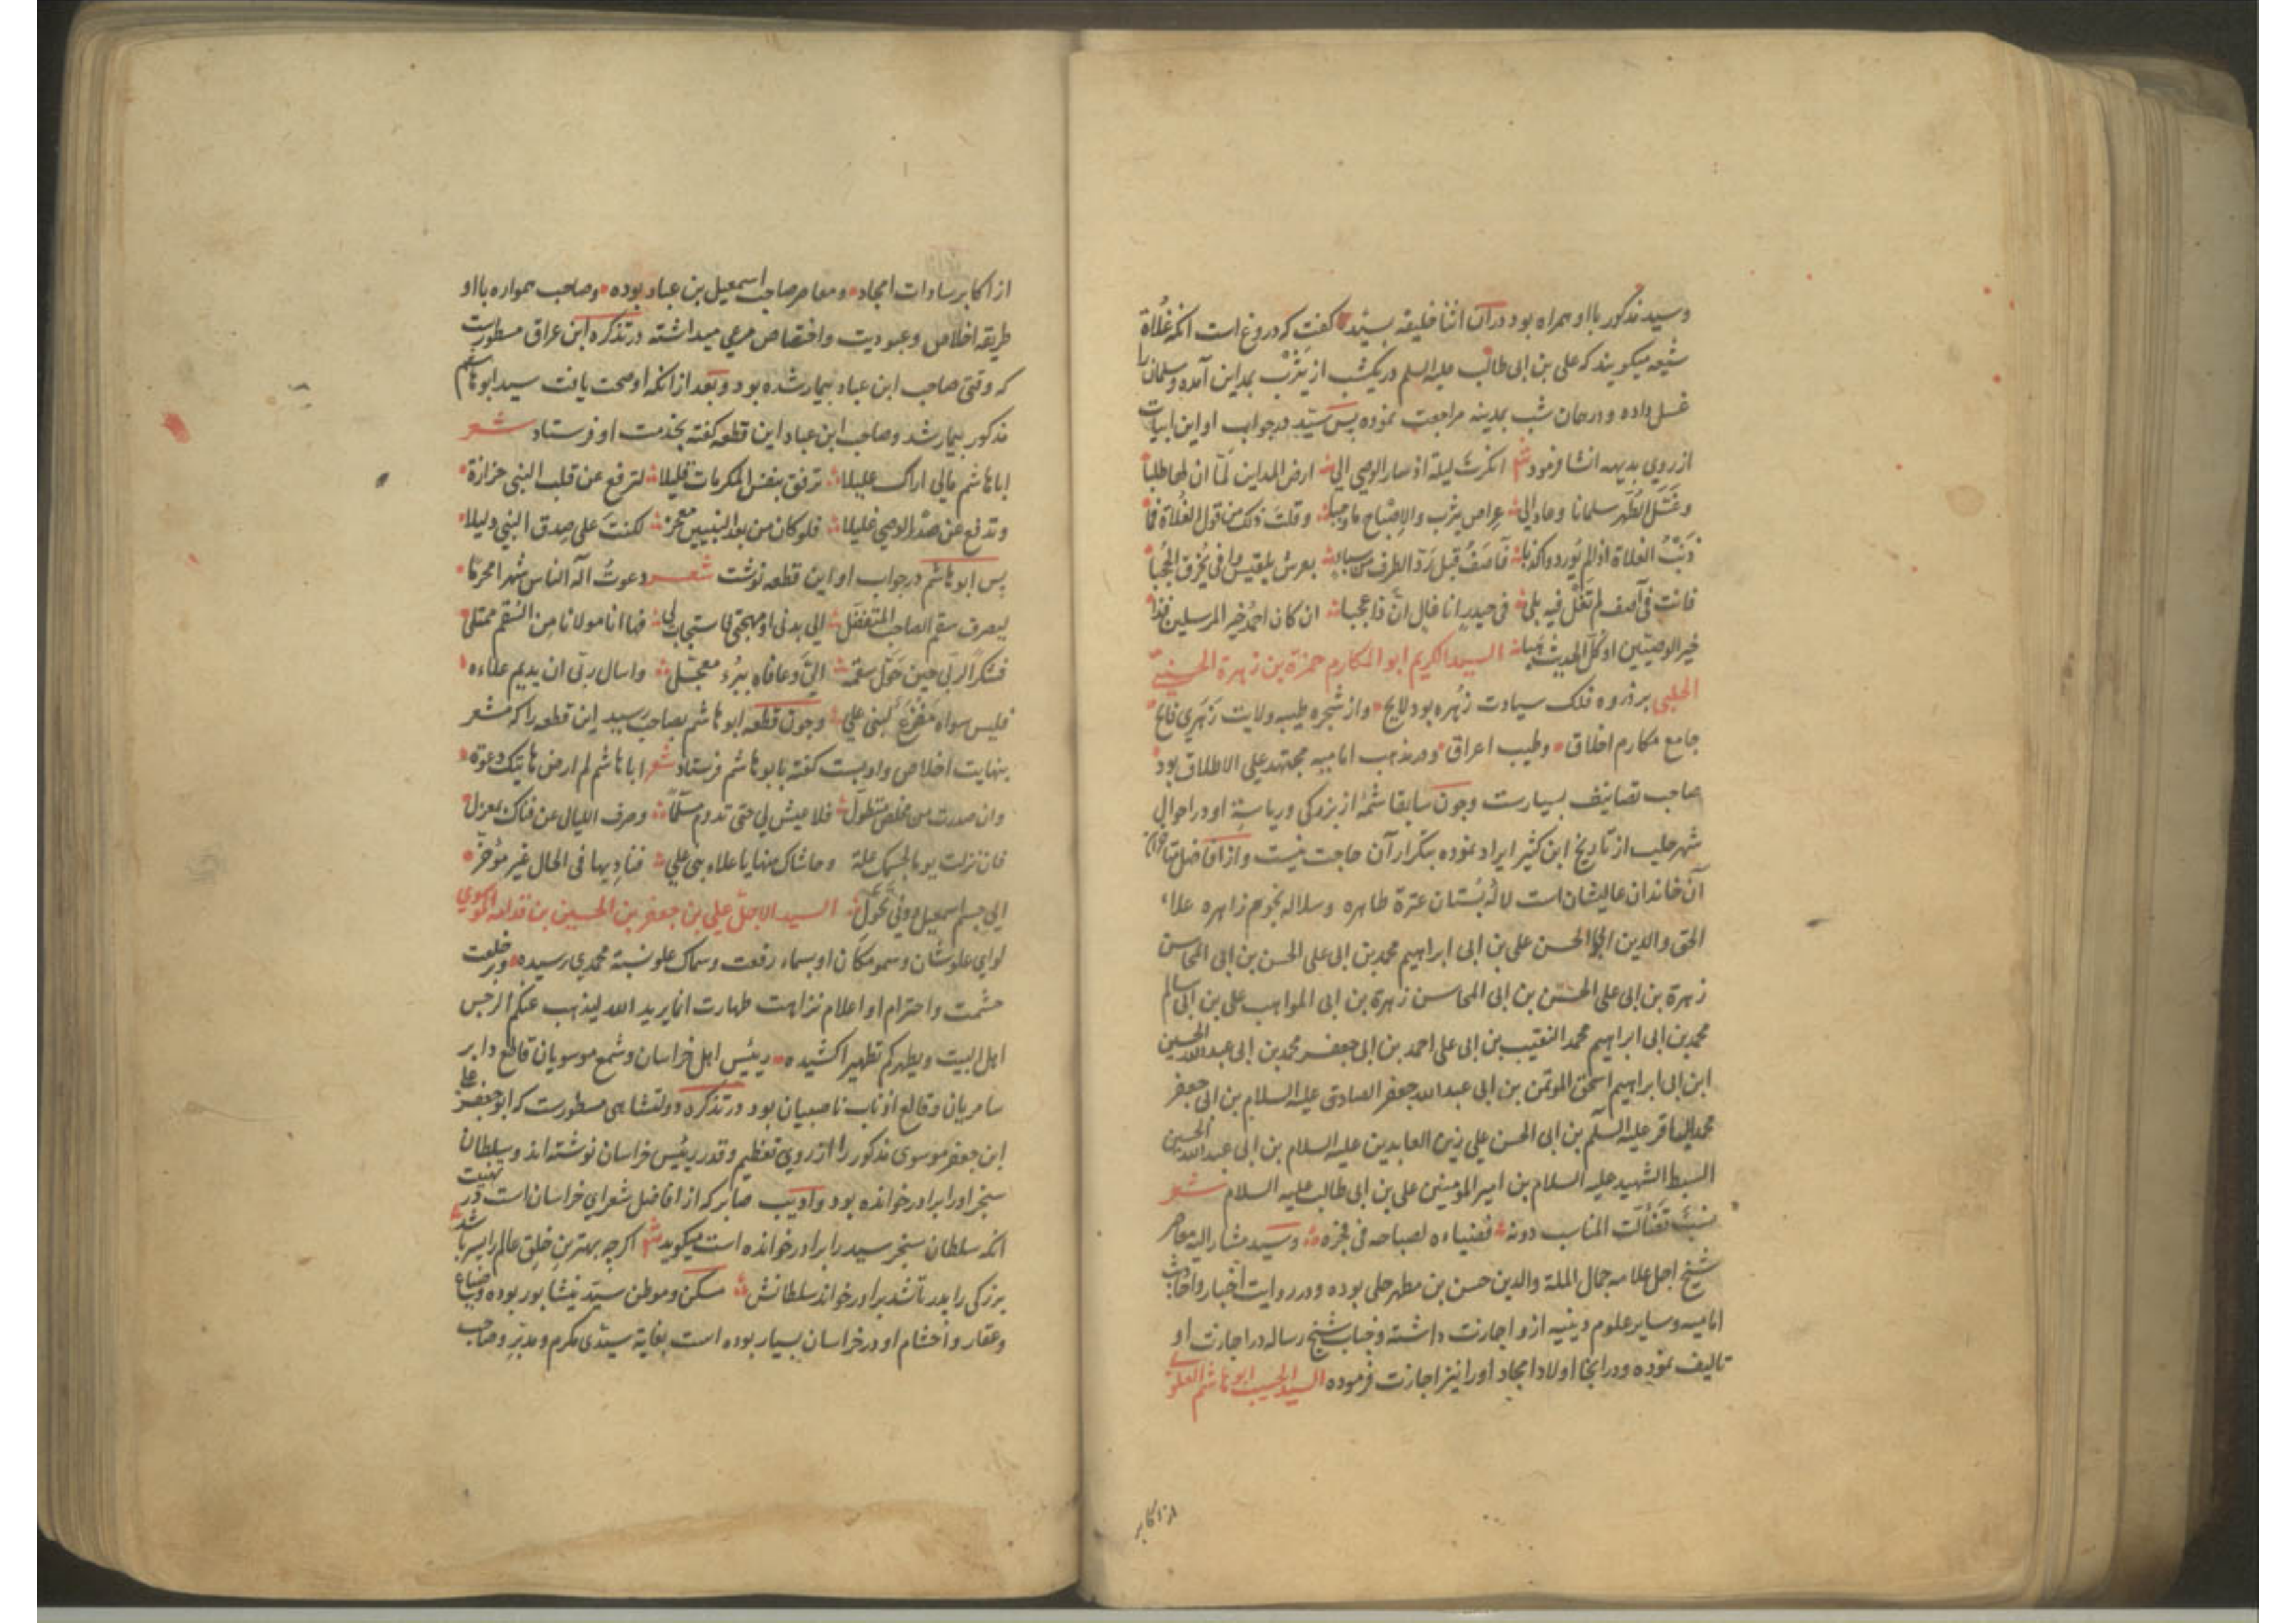 وسید مذکور با او همراه بود در آن اثنا خلیفه بسید کفت که دروغ است انکه غُلاة
شیعه میکویند که علی بن ابی طالب علیه السلم در یکشب از یثرب بمداین آمده و سلمان را
غسل داده و در همان شب بمدینه مراجعت نموده پس سید در جواب او این ابیات
از روی بدیهه انشا فرمود شعر انکرت لیلة اذ سار الوصی الی ارض المداین لمّا ان لها طلبا
وغسّل الطُهر سلمانا وعاد الی عراص یثرب والاِصباح ما وجبا وقلت ذلک من قول الغُلاة فما
ذنبُ الغلاة اذا لم یُوردوا کذبا فآصفُ قبل ردّ الطرف من سباء بعرش بلقیس وافی یُخرق الحُجُبا
فانت فی آصف لم تغل فیه بلی فی حیدر انا غال انّ ذا عجبا ان کان احمدُ خیر المرسلین فذا
خیر الوصیّین او کلّ الحدیث هبا السید الکریم ابو المکارم حمزة بن زهرة الحسینی
الحلبی بر ذروه فلک سیادت زُهره بود لایح واز شجره طیبه ولایت زَهَری فایح
جامع مکارم اخلاق وطیب اعراق ودر مذهب امامیه مجتهد علی الاطلاق بود
صاحب تصانیف بسیارست وچون سابقا شمّهٔ از بزرکی وریاسة او در احوال
شهر حلب از تاریخ ابن کثیر ایراد نموده بتکرار آن حاجت نیست واز افاضل متاخران
آن خاندان عالیشان است لالهٔ بُستان عترة طاهره وسلاله نجوم زاهره علاء
الحق والدین ابو الحسن علی بن ابی ابراهیم محمد بن ابی علی الحسن بن ابی المحاسن
زهرة بن ابی علی الحسن بن ابی المحاسن زهرة بن ابی المواهب علی بن ابی سالم
محمد بن ابی ابراهیم محمد النقیب بن ابی علی احمد بن ابی جعفر محمد بن ابی عبدالله الحسین
ابن ابی ابراهیم اسحق الموتمن بن ابی عبدالله جعفر الصادق علیه السلام بن ابی جعفر
محمد الباقر علیه السلم بن ابی الحسن علی زین العابدین علیه السلام بن ابی عبدالله الحسین
السبط الشهید علیه السلام بن امیر المومنین علی بن ابی طالب علیه السلام شعر
نسبٌ تضألت المناسب دونه فضیاءه لصباحه فی فجره وسید مشار الیه معاصر
شیخ اجل علامه جمال الملة والدین حسن بن مطهر حلی بوده ودر روایت اخبار واحادیث
امامیه وسایر علوم دینیه ازو اجازت داشته وجناب شیخ رساله در اجازت او
تالیف نموده ودر انجا اولاد امجاد او را نیز اجازت فرموده السید الحسیب ابو هاشم العلوی
از اکابر
از اکابر سادات امجاد ومعاصر صاحب اسمعیل بن عباد بوده وصاحب همواره با او
طریقه اخلاص وعبودیت واختصاص مرعی میداشته در تذکره ابن عراق مسطورست
که وقتی صاحب ابن عباد بیمار شده بود وبعد از انکه او صحت یافت سید ابو هاشم
مذکور بیمار شد وصاحب ابن عباد این قطعه کفته بخدمت او فرستاد شعر
اباهاشم مالی اراک علیلا ترفق بنفس المکرمات قلیلا لترفع عن قلب النبی حزازة
وتدفع عن صدر الوصی غلیلا فلو کان من بعد النبیین معجز لکنتَ علی صِدق النبی دلیلا
پس ابو هاشم در جواب او این قطعه نوشت شعر دعوتُ اله الناس شهرا محرّما
لیصرف سقم الصاحب المتفضّل الی بدنی او مهجتی فاستجاب لی فها انا مولانا من السُقم ممتلی
فشکرا لربّی حین حَوّل سقمه الیّ وعافاه ببُرء معجّل واسال ربّی ان یدیم علاءه
فلیس سواه مفزع لبنی علی وچون قطعه ابو هاشم بصاحب رسید این قطعه را که مشعر
بنهایت اخلاص واو بست کفته بابو هاشم فرستاد شعر اباهاشم لم ارض هاتیک دعوة
وان صدرت من مخلص متطوّل فلا عیش لی حتی تدوم مسلّما وصرف اللیالی عن فناک بمعزل
فان نزلت یوما بجسمک علة وحاشاک منها یا علاء بنی علی فنادِ بها فی الحال غیر مؤخر
الی جسم اسمعیل دونی تحوّلی السید الاجل علی بن جعفر بن الحسین بن قدامه الموسوی
لوای علو شان وسمو مکان او بسماء رفعت وسماک علو نسبة محمدی رسیده وبر خلعت
حشمت واحترام او اعلام نزاهت طهارت انما یرید الله لیذهب عنکم الرجس
اهل البیت ویطهرکم تطهیرا کشیده رییس اهل خراسان وشمع موسویان قاطع دابر
سامریان وقالع انیاب ناصبیان بود در تذکره دولتشاهی مسطورست که ابو جعفر علی
ابن جعفر موسوی مذکور را از روی تعظیم وقدر رئیس خراسان نوشته اند وسلطان
سنجر او را برادر خوانده بود وادیب صابر که از افاضل شعرای خراسان است در تهنیت
انکه سلطان سنجر سید را برادر خوانده است میکوید شعر اکرچه بهترین خلق عالم را پسر باشد
بزرکی را پدر تا شد برادر خواند سلطانش مسکن وموطن سید نیشابور بوده وضیاع
وعقار واحشام او در خراسان بسیار بوده است بغایة سیّدی مکرم ومدبّر وصاحب